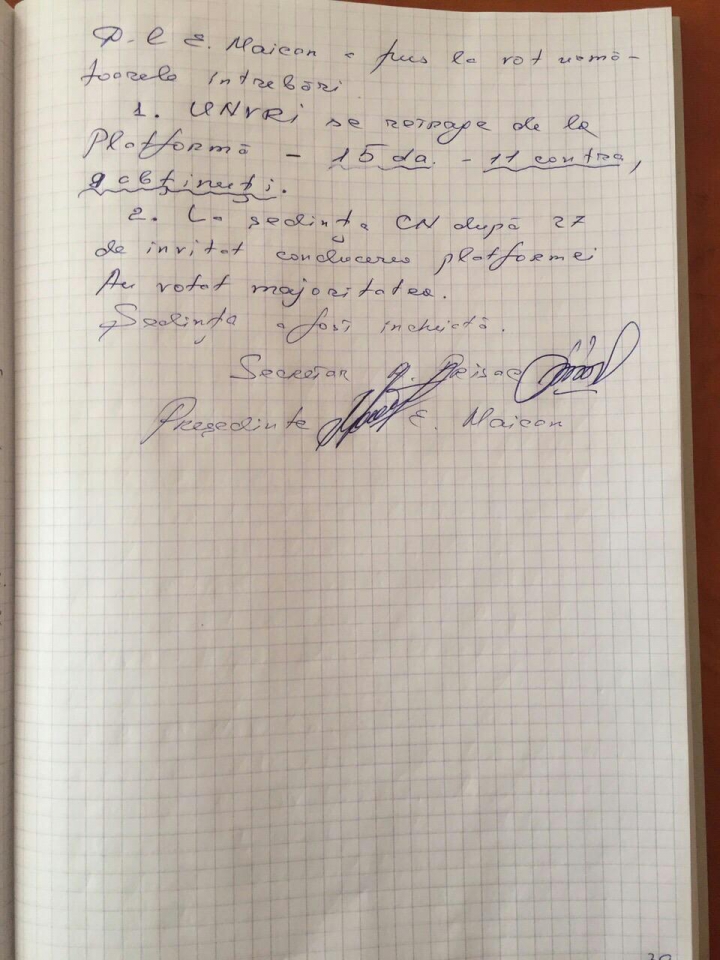 D-l E. Maican a pus la rot urmă-
toarele întrebări
1. UNVRI se retrage de la
Platformă - 15 da. - 11 contra,
9 abținuți.
2. La ședința CN după 27
de invitat conducerea platformei
Au votat majoritatea.
Ședința a fost încheiată.
Secretar Prisac
Președinte E. Maican